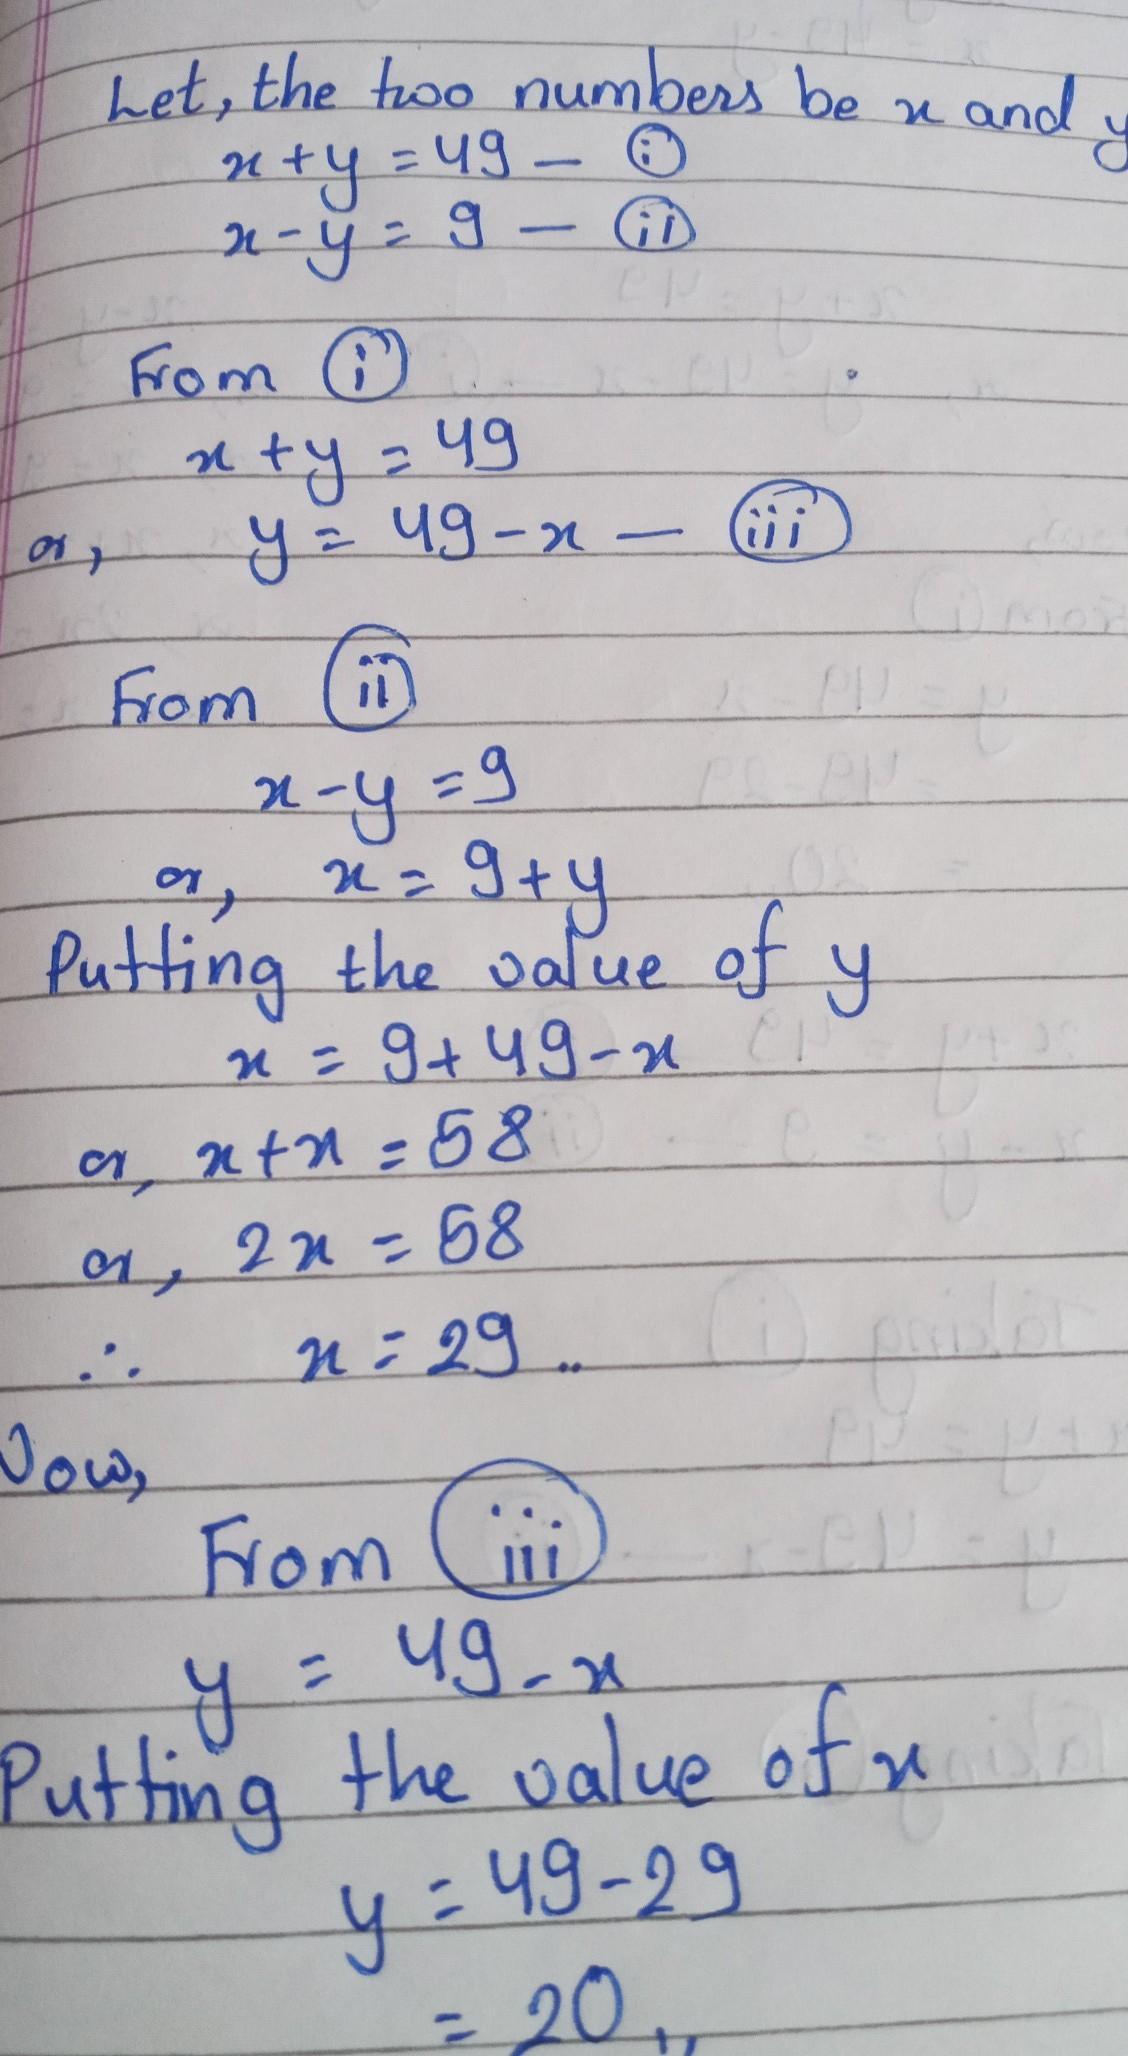 Let, the two numbers be x and y
x + y = 49 — (i)
x - y = 9 — (ii)
From (i)
x + y = 49
or, y = 49 - x — (iii)
From (ii)
x - y = 9
or, x = 9 + y
Putting the value of y
x = 9 + 49 - x
or, x + x = 58
or, 2x = 58
∴ x = 29 ..
Now,
From (iii)
y = 49 - x
Putting the value of x
y = 49 - 29
= 20 ,,